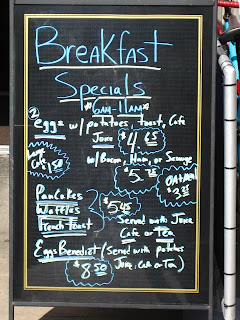 Breakfast
Specials
*6AM-11AM*
② eggs w/potatoes, toast, Cafe
Juice $4.65
w/Bacon, Ham, or Sausage
$5.
Oatmeal
Pancakes
Waffles
French Toast
$5.45
Served with Juice
Cafe or Tea
Eggs Benedict (Served with potatoes
$8.50 Juice, Cafe or Tea)